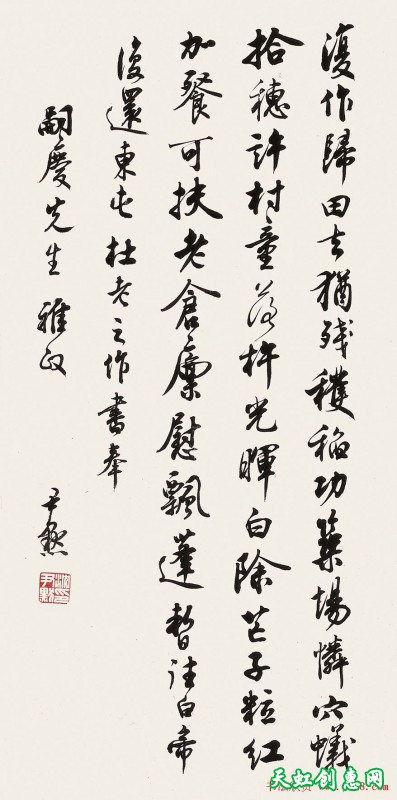 復作歸田去猶殘穫稻功築場憐穴蟻
拾穗許村童落杵光暉白除芒子粒紅
加餐可扶老倉廩慰飄蓬暫往白帝
復還東屯杜老之作書奉
嗣慶先生雅正
尹默
天虹创意网